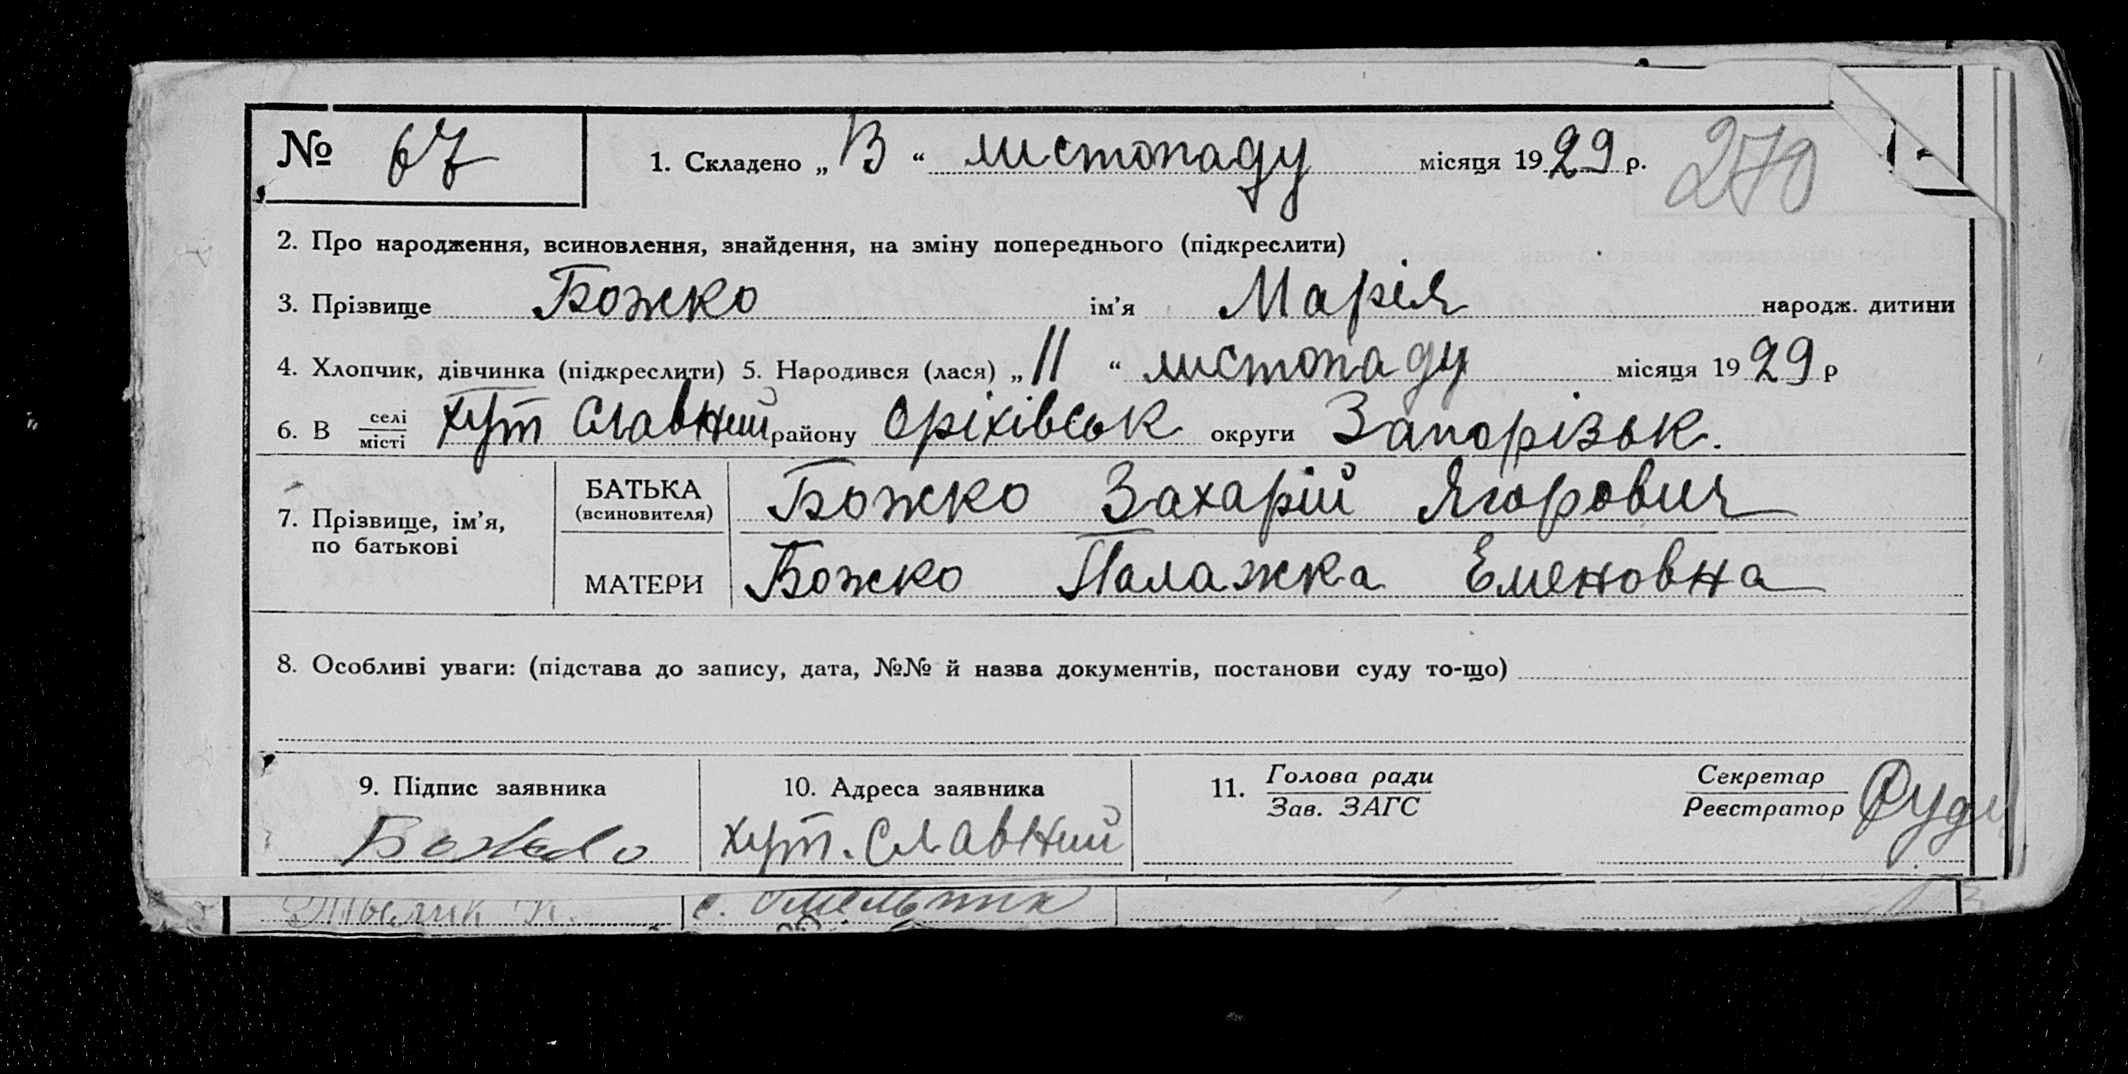 № 67 1. Складено „ 13 “ листопаду місяця 1929 р. 270
2. Про народження, всиновлення, знайдення, на зміну попереднього (підкреслити)
3. Прізвище Божко ім’я Марія народж. дитини
4. Хлопчик, дівчинка (підкреслити) 5. Народився (лася) „ 11 “ листопаду місяця 1929 р
6. В селі/місті хут Славний району Оріхівськ округи Запорізьк.
7. Прізвище, ім’я, по батькові
БАТЬКА (всиновителя) Божко Захарій Ягорович
МАТЕРИ Божко Палажка Еменовна
8. Особливі уваги: (підстава до запису, дата, №№ й назва документів, постанови суду то-що)
9. Підпис заявника 10. Адреса заявника 11. Голова ради/Зав. ЗАГС Секретар/Реєстратор
Божко хут. Славний
с. Омельник